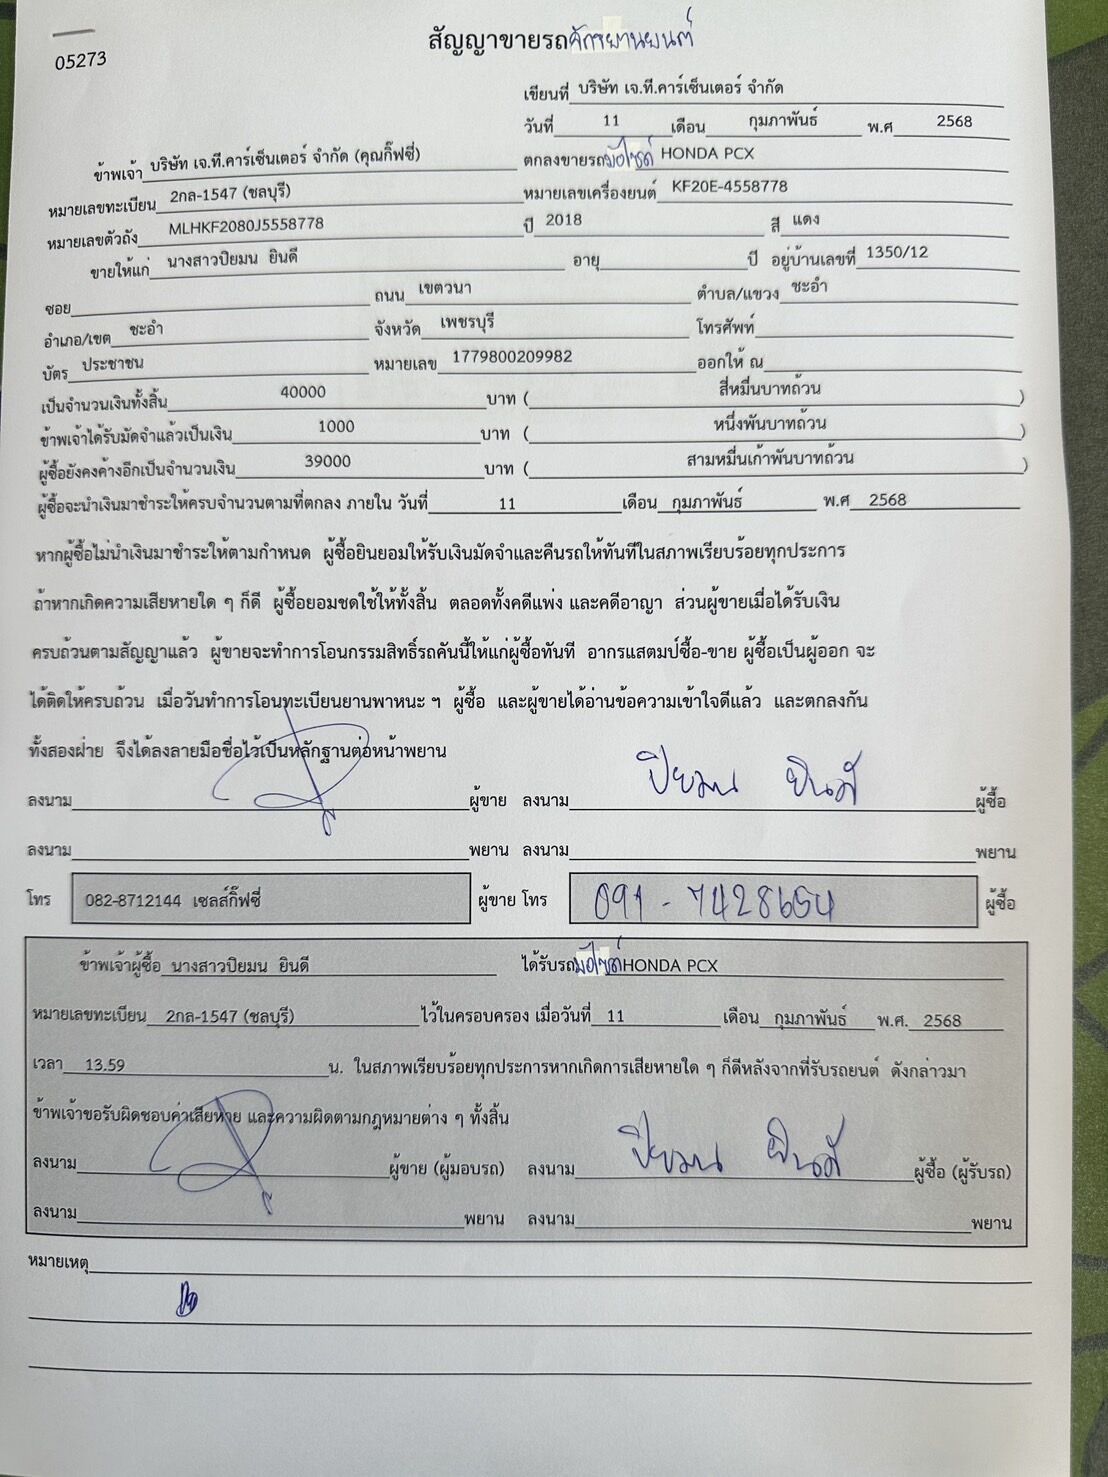 05273
สัญญาขายรถจักรยานยนต์
เขียนที่ บริษัท เจ.ที.คาร์เซ็นเตอร์ จำกัด
วันที่ 11 เดือน กุมภาพันธ์ พ.ศ 2568
ข้าพเจ้า บริษัท เจ.ที.คาร์เซ็นเตอร์ จำกัด (คุณกิ๊ฟซี่) ตกลงขายรถมอไซต์ HONDA PCX
หมายเลขทะเบียน 2กล-1547 (ชลบุรี) หมายเลขเครื่องยนต์ KF20E-4558778
หมายเลขตัวถัง MLHKF2080J5558778 ปี 2018 สี แดง
ขายให้แก่ นางสาวปิยมน ยินดี อายุ ปี อยู่บ้านเลขที่ 1350/12
ซอย ถนน เขตวนา ตำบล/แขวง ชะอำ
อำเภอ/เขต ชะอำ จังหวัด เพชรบุรี โทรศัพท์
บัตร ประชาชน หมายเลข 1779800209982 ออกให้ ณ
เป็นจำนวนเงินทั้งสิ้น 40000 บาท ( สี่หมื่นบาทถ้วน )
ข้าพเจ้าได้รับมัดจำแล้วเป็นเงิน 1000 บาท ( หนึ่งพันบาทถ้วน )
ผู้ซื้อยังคงค้างอีกเป็นจำนวนเงิน 39000 บาท ( สามหมื่นเก้าพันบาทถ้วน )
ผู้ซื้อจะนำเงินมาชำระให้ครบจำนวนตามที่ตกลง ภายใน วันที่ 11 เดือน กุมภาพันธ์ พ.ศ 2568
หากผู้ซื้อไม่นำเงินมาชำระให้ตามกำหนด ผู้ซื้อยินยอมให้รับเงินมัดจำและคืนรถให้ทันทีในสภาพเรียบร้อยทุกประการ
ถ้าหากเกิดความเสียหายใด ๆ ก็ดี ผู้ซื้อยอมชดใช้ให้ทั้งสิ้น ตลอดทั้งคดีแพ่ง และคดีอาญา ส่วนผู้ขายเมื่อได้รับเงิน
ครบถ้วนตามสัญญาแล้ว ผู้ขายจะทำการโอนกรรมสิทธิ์รถคันนี้ให้แก่ผู้ซื้อทันที อากรแสตมป์ซื้อ-ขาย ผู้ซื้อเป็นผู้ออก จะ
ได้ติดให้ครบถ้วน เมื่อวันทำการโอนทะเบียนยานพาหนะ ฯ ผู้ซื้อ และผู้ขายได้อ่านข้อความเข้าใจดีแล้ว และตกลงกัน
ทั้งสองฝ่าย จึงได้ลงลายมือชื่อไว้เป็นหลักฐานต่อหน้าพยาน
ลงนาม ผู้ขาย ลงนาม ปิยมน ยินดี ผู้ซื้อ
ลงนาม พยาน ลงนาม พยาน
โทร 082-8712144 เซลส์กิ๊ฟซี่ ผู้ขาย โทร 091-7428654 ผู้ซื้อ
ข้าพเจ้าผู้ซื้อ นางสาวปิยมน ยินดี ได้รับรถมอไซต์ HONDA PCX
หมายเลขทะเบียน 2กล-1547 (ชลบุรี) ไว้ในครอบครอง เมื่อวันที่ 11 เดือน กุมภาพันธ์ พ.ศ. 2568
เวลา 13.59 น. ในสภาพเรียบร้อยทุกประการหากเกิดการเสียหายใด ๆ ก็ดีหลังจากที่รับรถยนต์ ดังกล่าวมา
ข้าพเจ้าขอรับผิดชอบค่าเสียหาย และความผิดตามกฎหมายต่าง ๆ ทั้งสิ้น
ลงนาม ผู้ขาย (ผู้มอบรถ) ลงนาม ปิยมน ยินดี ผู้ซื้อ (ผู้รับรถ)
ลงนาม พยาน ลงนาม พยาน
หมายเหตุ